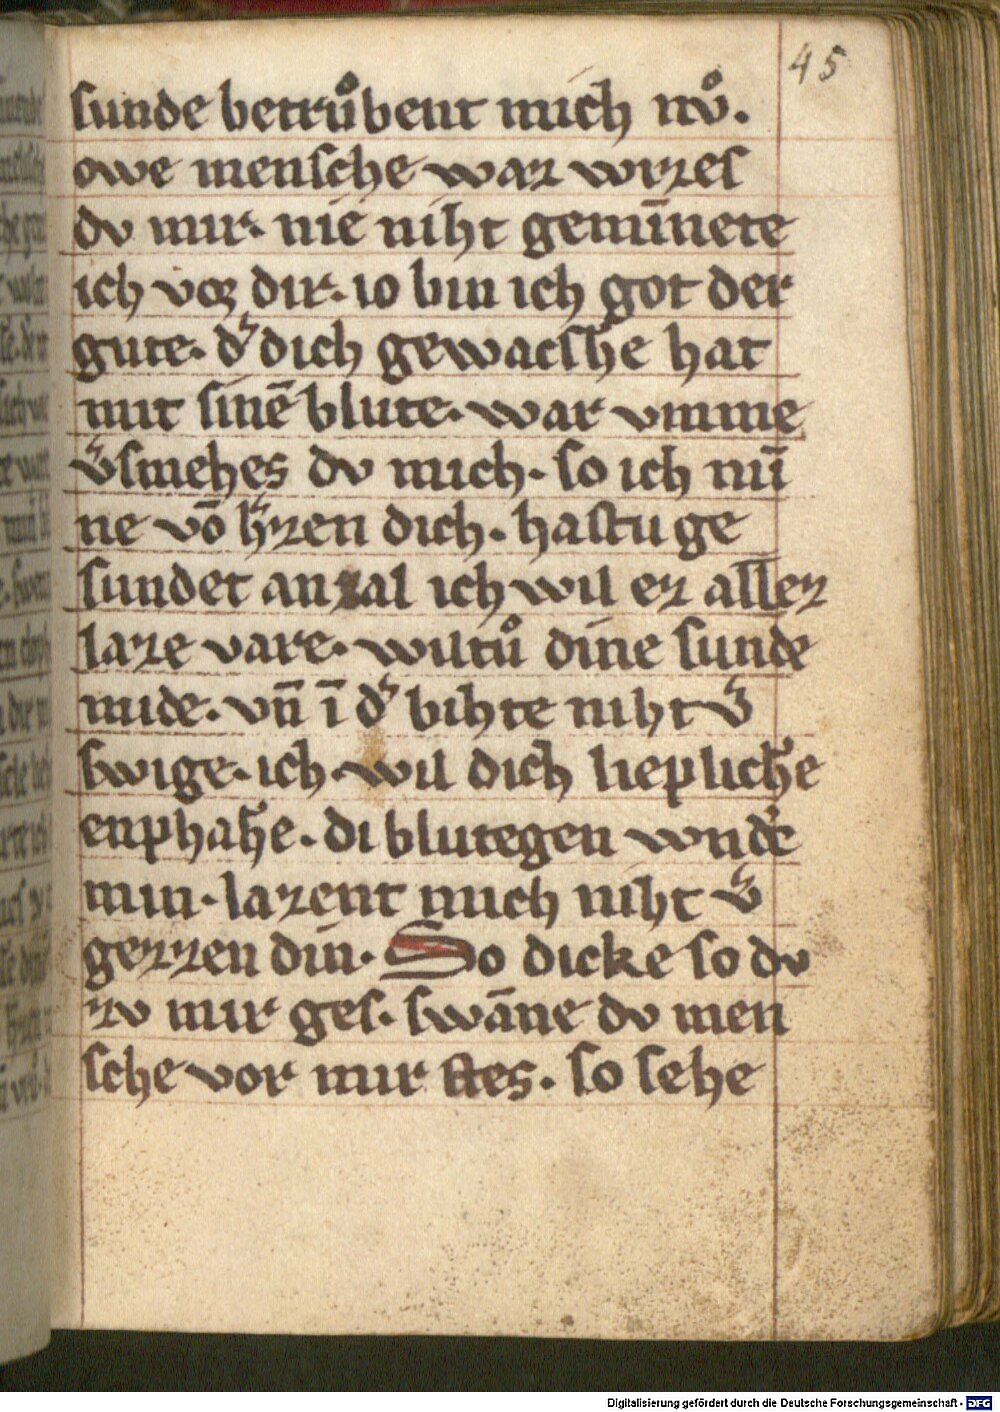 45
sunde betrůbent mich nv̊.
owe mensche waz wizzes
dv mir. nie niht gemīnete
ich voz dir. io bin ich got der
gute. d͛ dich gewacshe hat
mit sinē blute. war vmme
v͛smehes dv mich. so ich mī
ne vō h͛zen dich. hastu ge
sundet an zal ich wil ez allez
laze vare. wiltů dine sunde
mide. vn̄ ī d͛ bihte niht v͛
swige. ich wil dich lieplich͛e
enphah͛e. di blutegen wnd͛e
min. lazent mich niht v͛
gezzen din. So dicke so dv
zv mir ges. swāne dv men
sche vor mir stes. so sehe
Digitalisierung gefördert durch die Deutsche Forschungsgemeinschaft - DFG